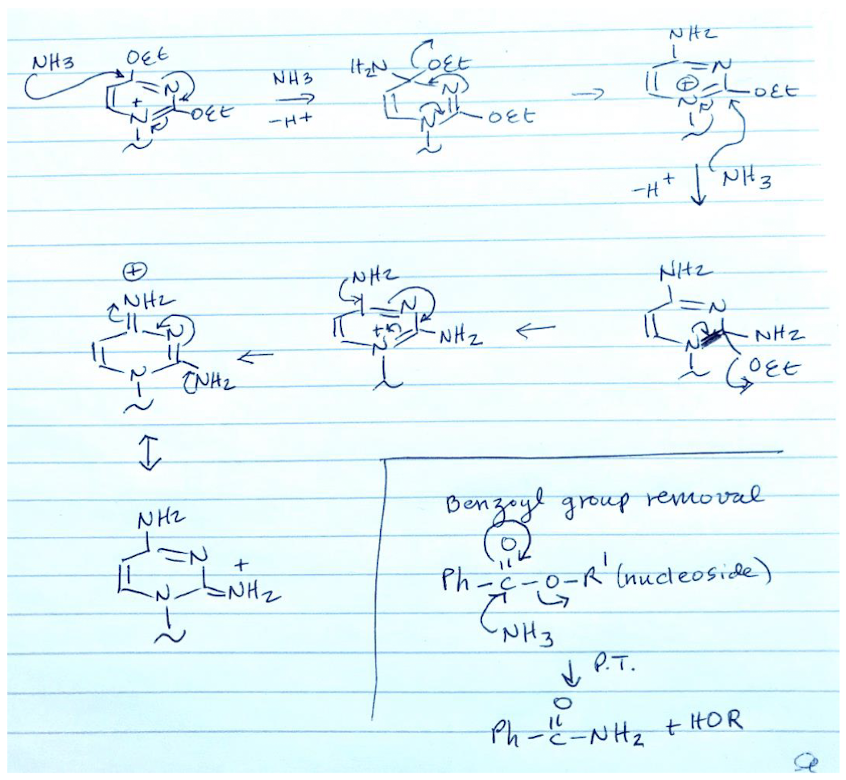 NH3 OEt N + N OEt
NH3
-H+
H2N OEt N N OEt
NH2 N ⊕ N OEt
-H+ NH3
⊕
NH2 N N NH2
NH2 N + N NH2
NH2 N N NH2 OEt
NH2 N N + NH2
Benzoyl group removal
O
Ph-C-O-R' (nucleoside)
NH3
P.T.
O
Ph-C-NH2 + HOR